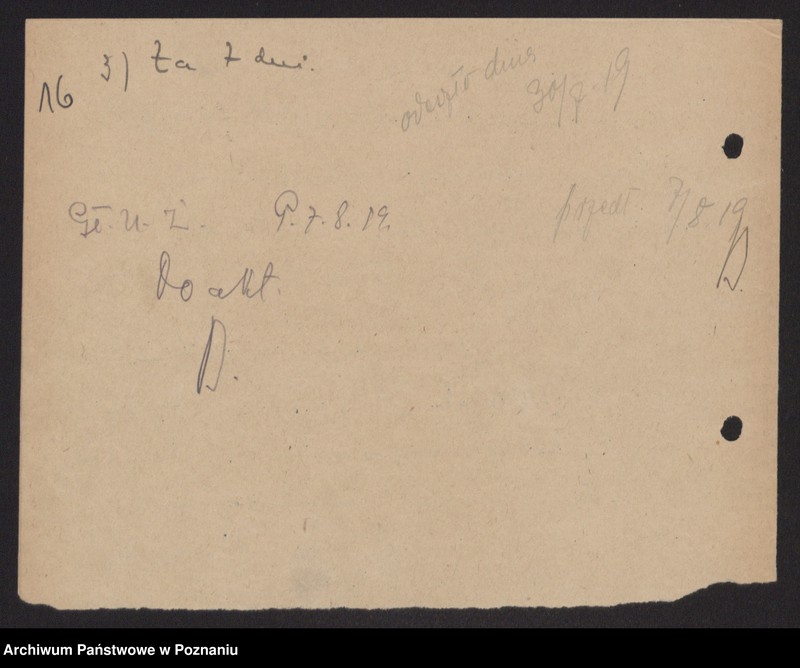 16
3) Za 7 dni.
odeszło dnia
30/7 19
Gł. U. Ż. P. 7. 8. 19.
przedł. 7/8. 19
D.
Do akt.
D.
Archiwum Państwowe w Poznaniu